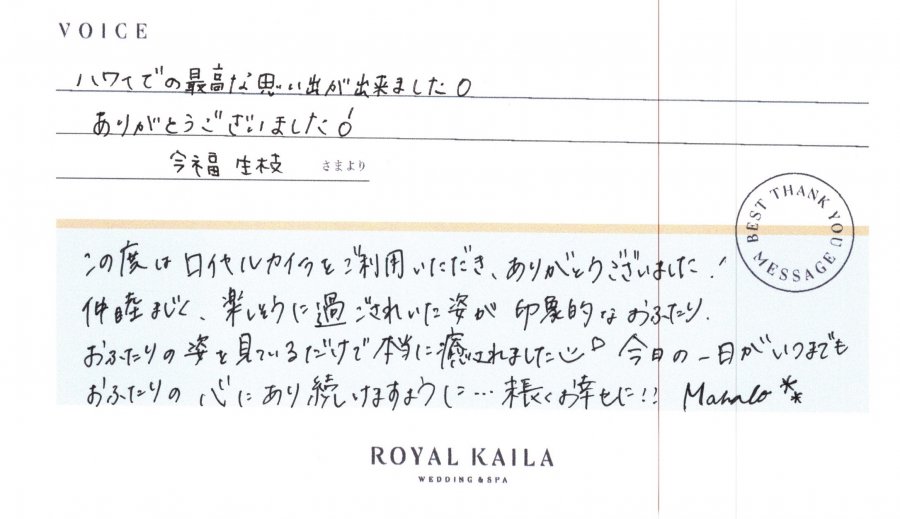 VOICE
ハワイでの最高な思い出が出来ました♡
ありがとうございました♡!
今福 生枝 さまより
BEST THANK YOU MESSAGE
この度はロイヤルカイラをご利用いただき、ありがとうございました!
仲睦まじく、楽しそうに過ごされいた姿が印象的なおふたり。
おふたりの姿を見ているだけで本当に癒されました♡ 今日の一日がいつまでも
おふたりの心にあり続いけますように… 末長くお幸せに!! Mahalo**
ROYAL KAILA
WEDDING & SPA